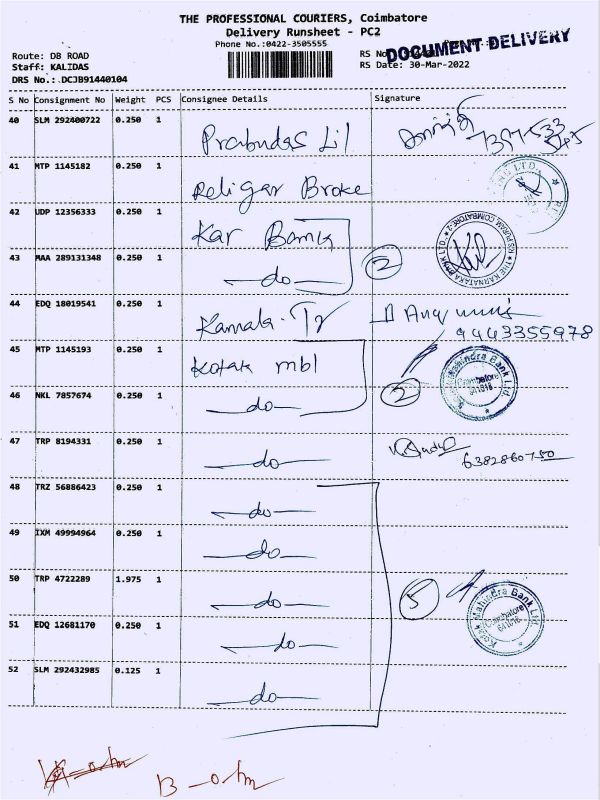 THE PROFESSIONAL COURIERS, Coimbatore
Delivery Runsheet - PC2
Phone No.:0422-3505555
DOCUMENT DELIVERY
Route: DB ROAD
RS No
Staff: KALIDAS
RS Date: 30-Mar-2022
DRS No.: DCJB91440104
S No Consignment No Weight PCS Consignee Details Signature
40 SLM 292400722 0.250 1 Prabudas Lil
41 MTP 1145182 0.250 1 Religar Broke
42 UDP 12356333 0.250 1 Kar Bank
43 MAA 289131348 0.250 1 do 2
THE KARNATAKA BANK LTD. RS PURAM COIMBATORE-2
44 EDQ 18019541 0.250 1 Kamala Tr
9443355978
45 MTP 1145193 0.250 1 Kotak mbl
46 NKL 7857674 0.250 1 do 2
Kotak Mahindra Bank Ltd. Coimbatore 641018
47 TRP 8194331 0.250 1 do 6382860750
48 TRZ 56886423 0.250 1 do
49 IXM 49994964 0.250 1 do
50 TRP 4722289 1.975 1 do 5
Kotak Mahindra Bank Ltd. Coimbatore 641018
51 EDQ 12681170 0.250 1 do
52 SLM 292432985 0.125 1 do
13